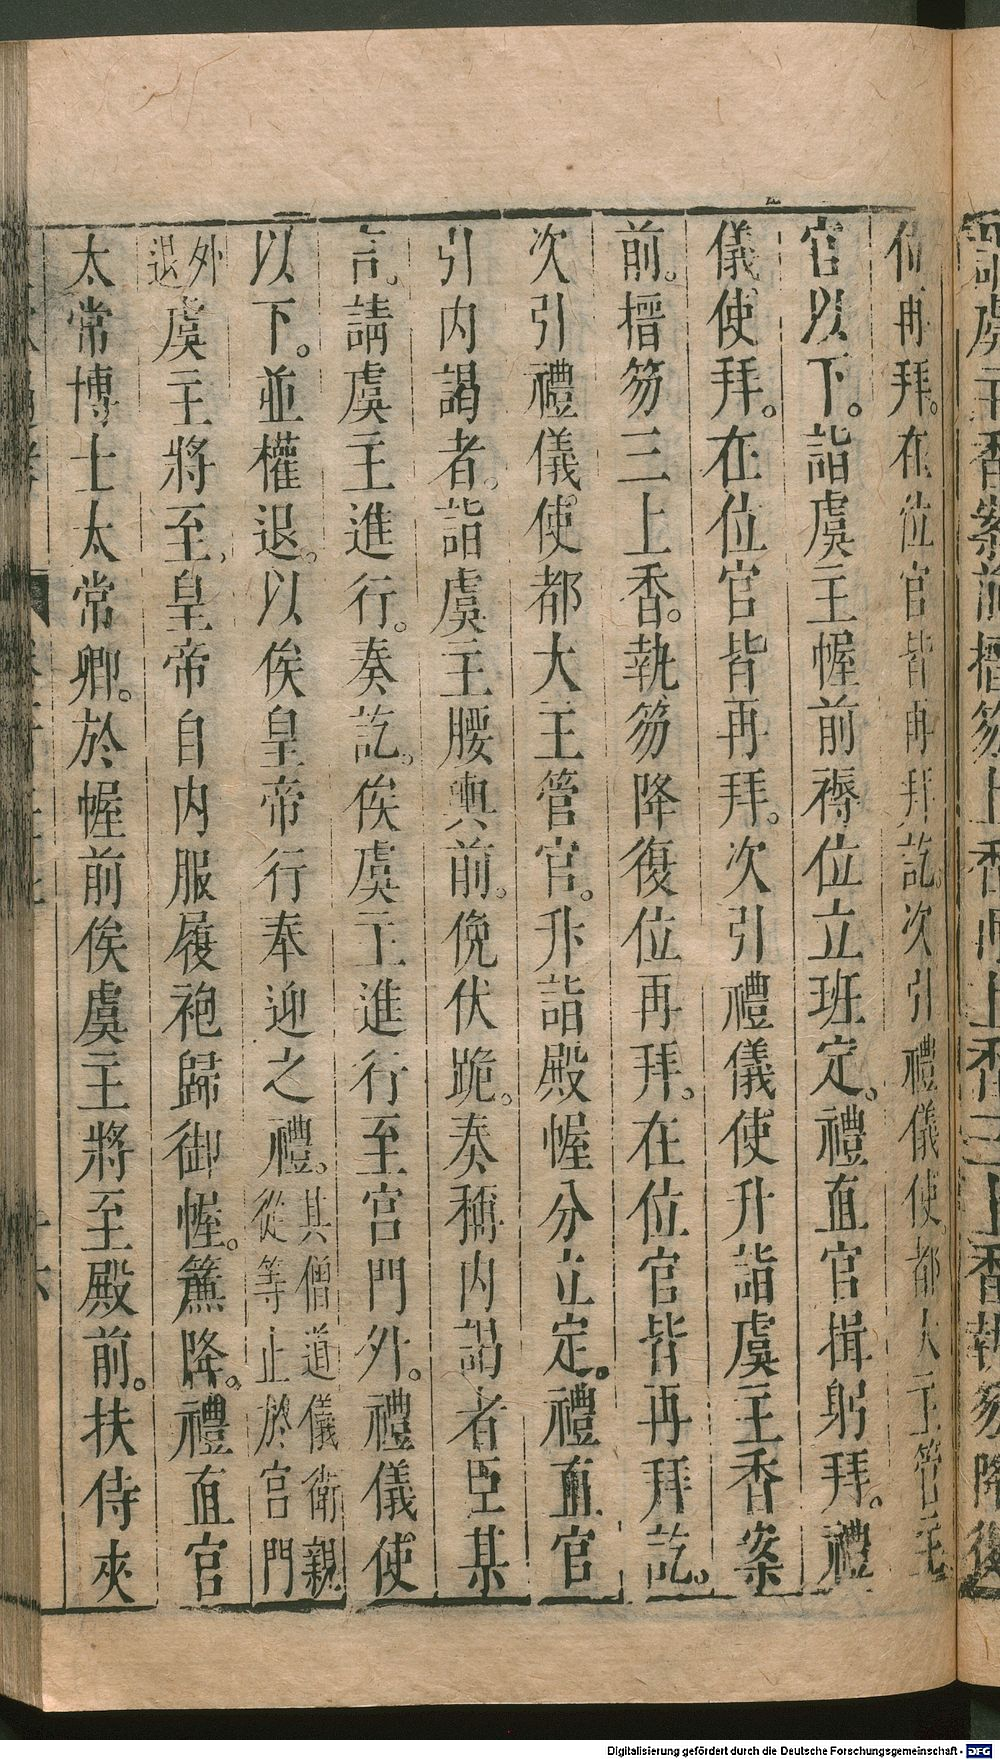 再拜。在位官皆再拜訖。次引禮儀使。都大主管
官以下。詣虞主幄前褥位立班定。禮直官揖躬拜。禮
儀使拜。在位官皆再拜。次引禮儀使升詣虞主香案
前。搢笏三上香。執笏降復位再拜。在位官皆再拜訖。
次引禮儀使都大主管官。升詣殿幄分立定。禮直官
引内謁者。詣虞主腰輿前。俛伏跪。奏稱内謁者臣某
言。請虞主進行。奏訖。俟虞主進行至宮門外。禮儀使
以下。並權退。以俟皇帝行奉迎之禮。其僧道儀衛親從等止於宮門
外退虞主將至。皇帝自内服履袍歸御幄。簾降。禮直官
太常博士太常卿。於幄前俟虞主將至殿前。扶侍夾
Digitalisierung gefördert durch die Deutsche Forschungsgemeinschaft - DFG